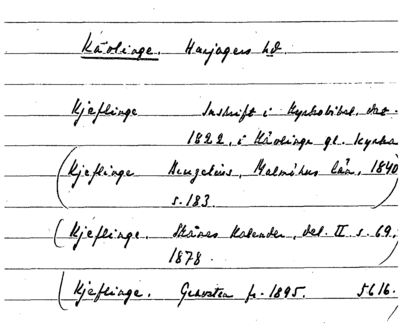 Kävlinge. Harjagers hd.
Kjeflinge Inskrift i Kyrkobibel, dat.
1822, i Kävlinge gl. kyrka
(Kjeflinge Malmöhus län, 1840
s. 183. )
(Kjeflinge. Skånes Kalender, del. II s. 69,
1878. )
(Kjeflinge. fr. 1895. 5616.
)